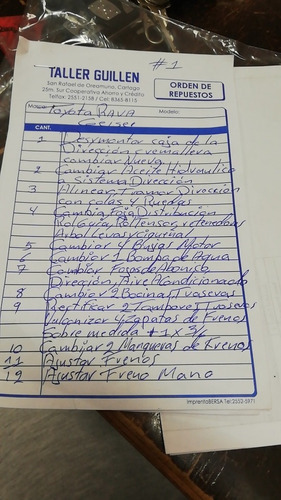 #1
TALLER GUILLEN
San Rafael de Oreamuno, Cartago
25m. Sur Cooperativa Ahorro y Crédito
Telfax: 2551-2138 / Cel: 8365-8115
ORDEN DE
REPUESTOS
Marca: Toyota RAVA Modelo:
CANT.
1 Desmontar caja de la
Dirección cremallera
cambiar nueva
2 Cambiar Aceite Hidraulico
Sistema Dirección
3 Alinear, Tramar Dirección
con colas y Ruedas
4 Cambia Faja Distribución
5 Cambiar 4 Bujas Motor
6 Cambiar 1 Bomba de Agua
7 Cambiar Fajas de
Dirección, Aire Acondicionado
8 Cambiar 2 Bocinas Traseras
9 Rectificar 2 Tambores Traseros
4 Zapatas de Frenos
Sobre medida + 1 x 3/6
10 Cambiar 2 Mangueras de Frenos
11 Ajustar Frenos
12 Ajustar Freno Mano
ImprentaBERSA Tel: 2552-5971